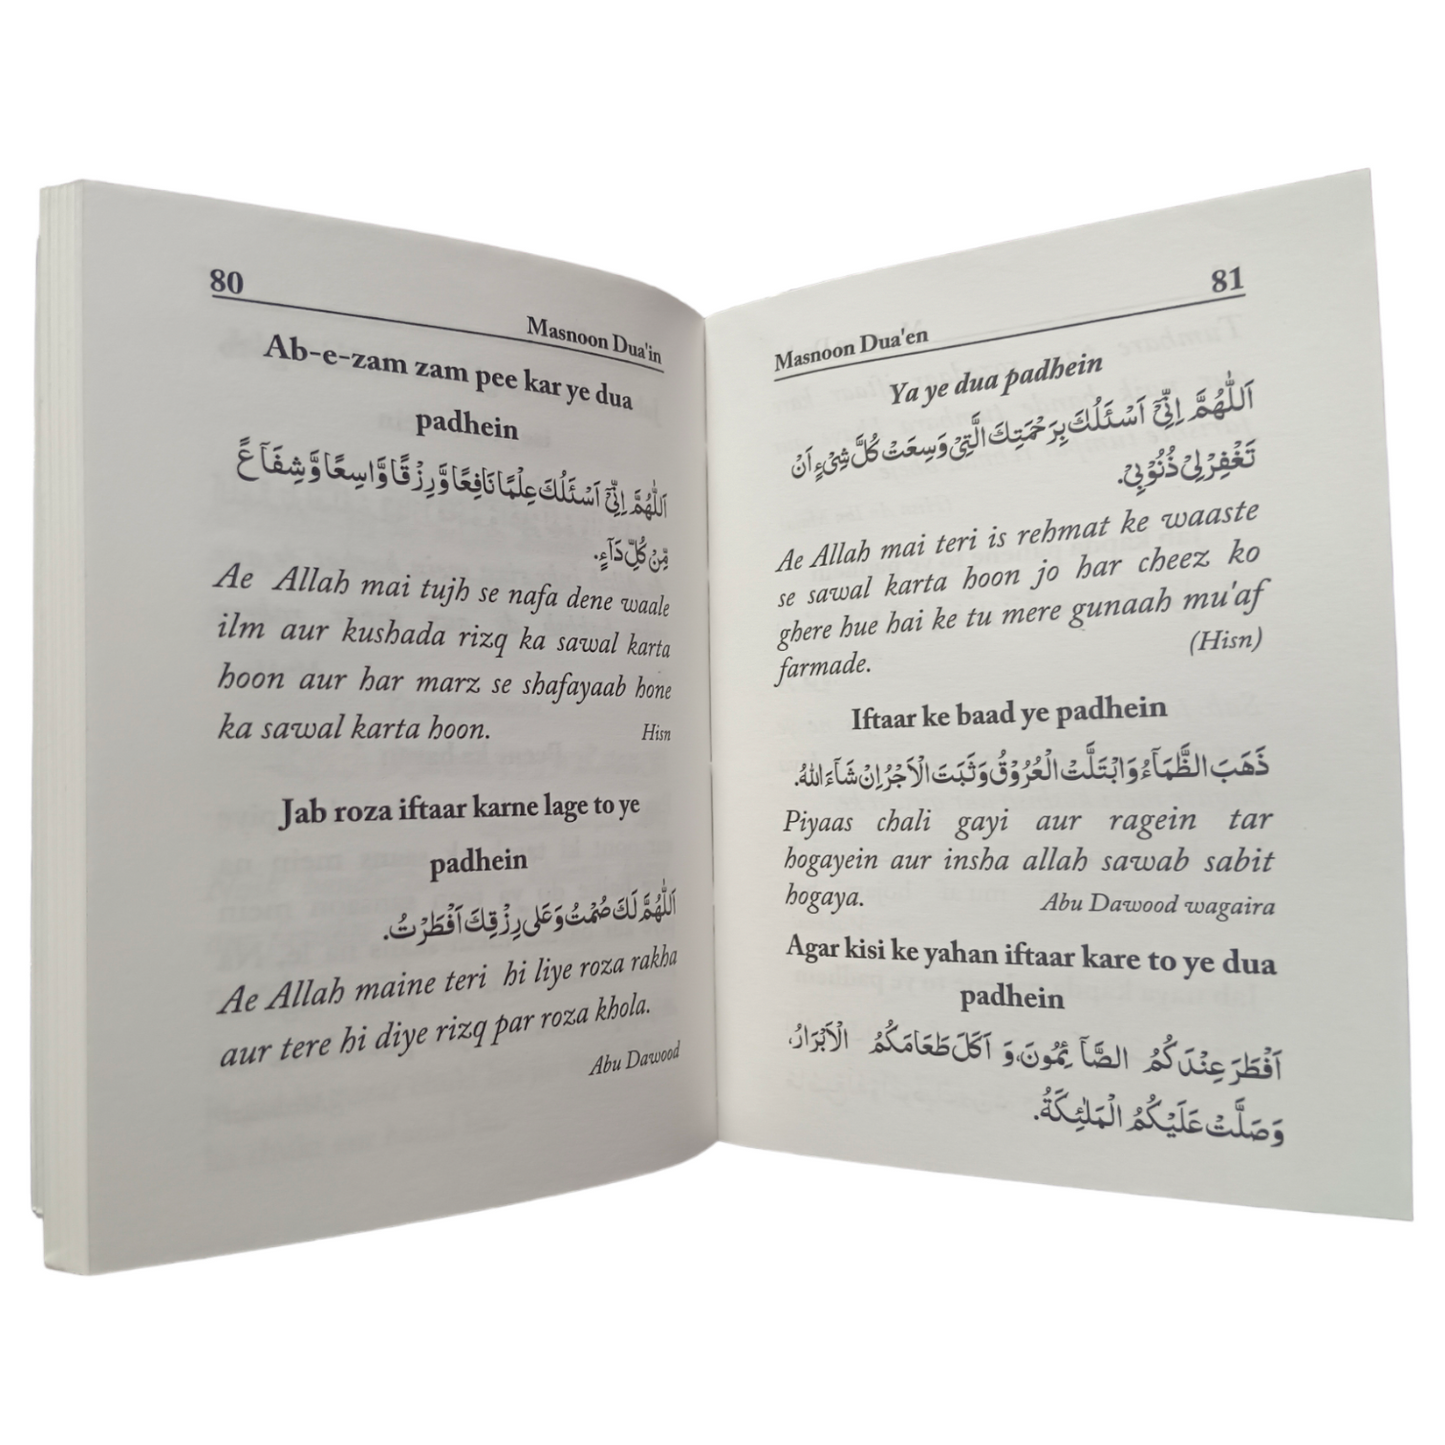 80
Masnoon Dua'in
Ab-e-zam zam pee kar ye dua
padhein
اَللّٰهُمَّ اِنِّیْٓ اَسْئَلُكَ عِلْمًا نَافِعًا وَّرِزْقًا وَّاسِعًا وَّشِفَآءً
مِّنْ كُلِّ دَآءٍ.
Ae Allah mai tujh se nafa dene waale
ilm aur kushada rizq ka sawal karta
hoon aur har marz se shafayaab hone
ka sawal karta hoon. Hisn
Jab roza iftaar karne lage to ye
padhein
اَللّٰهُمَّ لَكَ صُمْتُ وَعَلٰی رِزْقِكَ اَفْطَرْتُ.
Ae Allah maine teri hi liye roza rakha
aur tere hi diye rizq par roza khola.
Abu Dawood
81
Masnoon Dua'en
Ya ye dua padhein
اَللّٰهُمَّ اِنِّیْٓ اَسْئَلُكَ بِرَحْمَتِكَ الَّتِیْ وَسِعَتْ كُلَّ شَیْءٍ اَنْ
تَغْفِرْلِیْ ذُنُوْبِیْ.
Ae Allah mai teri is rehmat ke waaste
se sawal karta hoon jo har cheez ko
ghere hue hai ke tu mere gunaah mu'af
farmade. (Hisn)
Iftaar ke baad ye padhein
ذَهَبَ الظَّمَآءُ وَابْتَلَّتْ الْعُرُوْقُ وَثَبَتَ الْاَجْرُ اِنْ شَآءَ اللهُ.
Piyaas chali gayi aur ragein tar
hogayein aur insha allah sawab sabit
hogaya. Abu Dawood wagaira
Agar kisi ke yahan iftaar kare to ye dua
padhein
اَفْطَرَ عِنْدَكُمُ الصَّآئِمُونَ، وَ اَكَلَ طَعَامَكُمُ الْاَبْرَارُ،
وَصَلَّتْ عَلَيْكُمُ الْمَلٰٓئِكَةُ.